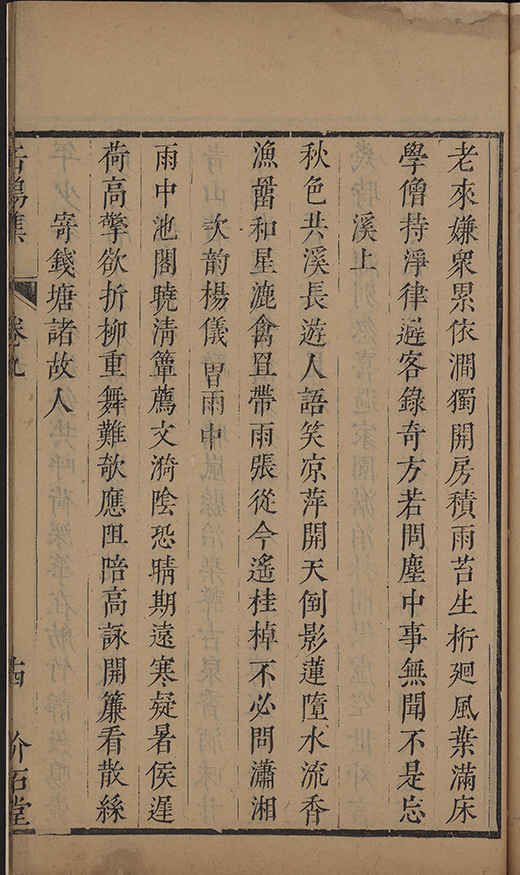 老來嫌衆累依澗獨開房積雨苔生桁廻風葉滿床
學僧持淨律避客錄奇方若問塵中事無聞不是忘
溪上
秋色共溪長遊人語笑凉萍開天倒影蓮墮水流香
漁罶和星漉禽罝帶雨張從今遙桂棹不必問瀟湘
次韵楊儀曹雨中
雨中池閣曉淸簟薦文漪陰恐晴期遠寒疑暑侯遲
荷高擎欲折柳重舞難欹應阻陪高詠開簾看散絲
寄錢塘諸故人
集 卷九 十四 介石堂